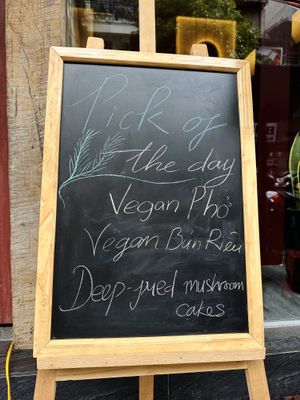 Pick of
the day
Vegan Phở
Vegan Bún Riêu
Deep-fried mushroom
cakes